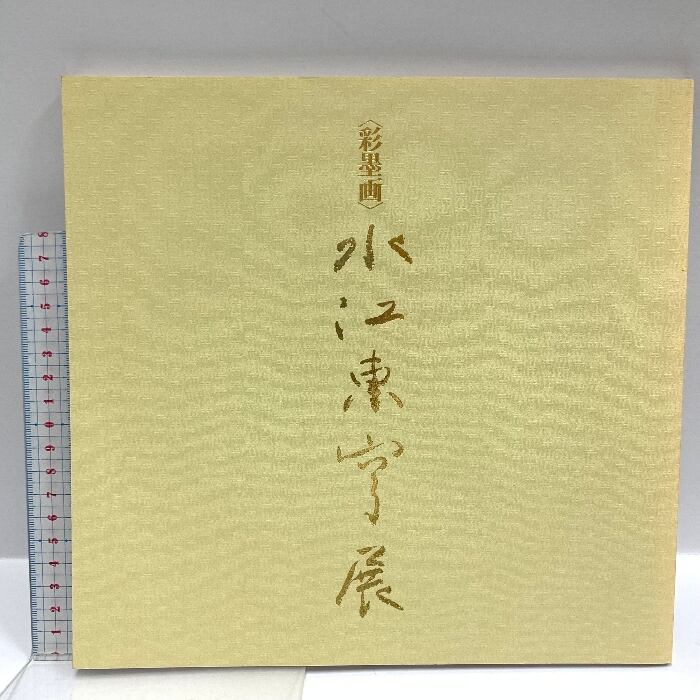 〈彩墨画〉
水江東穹展
8
7
6
5
4
3
2
1
0
9
8
7
6
5
4
3
2
1